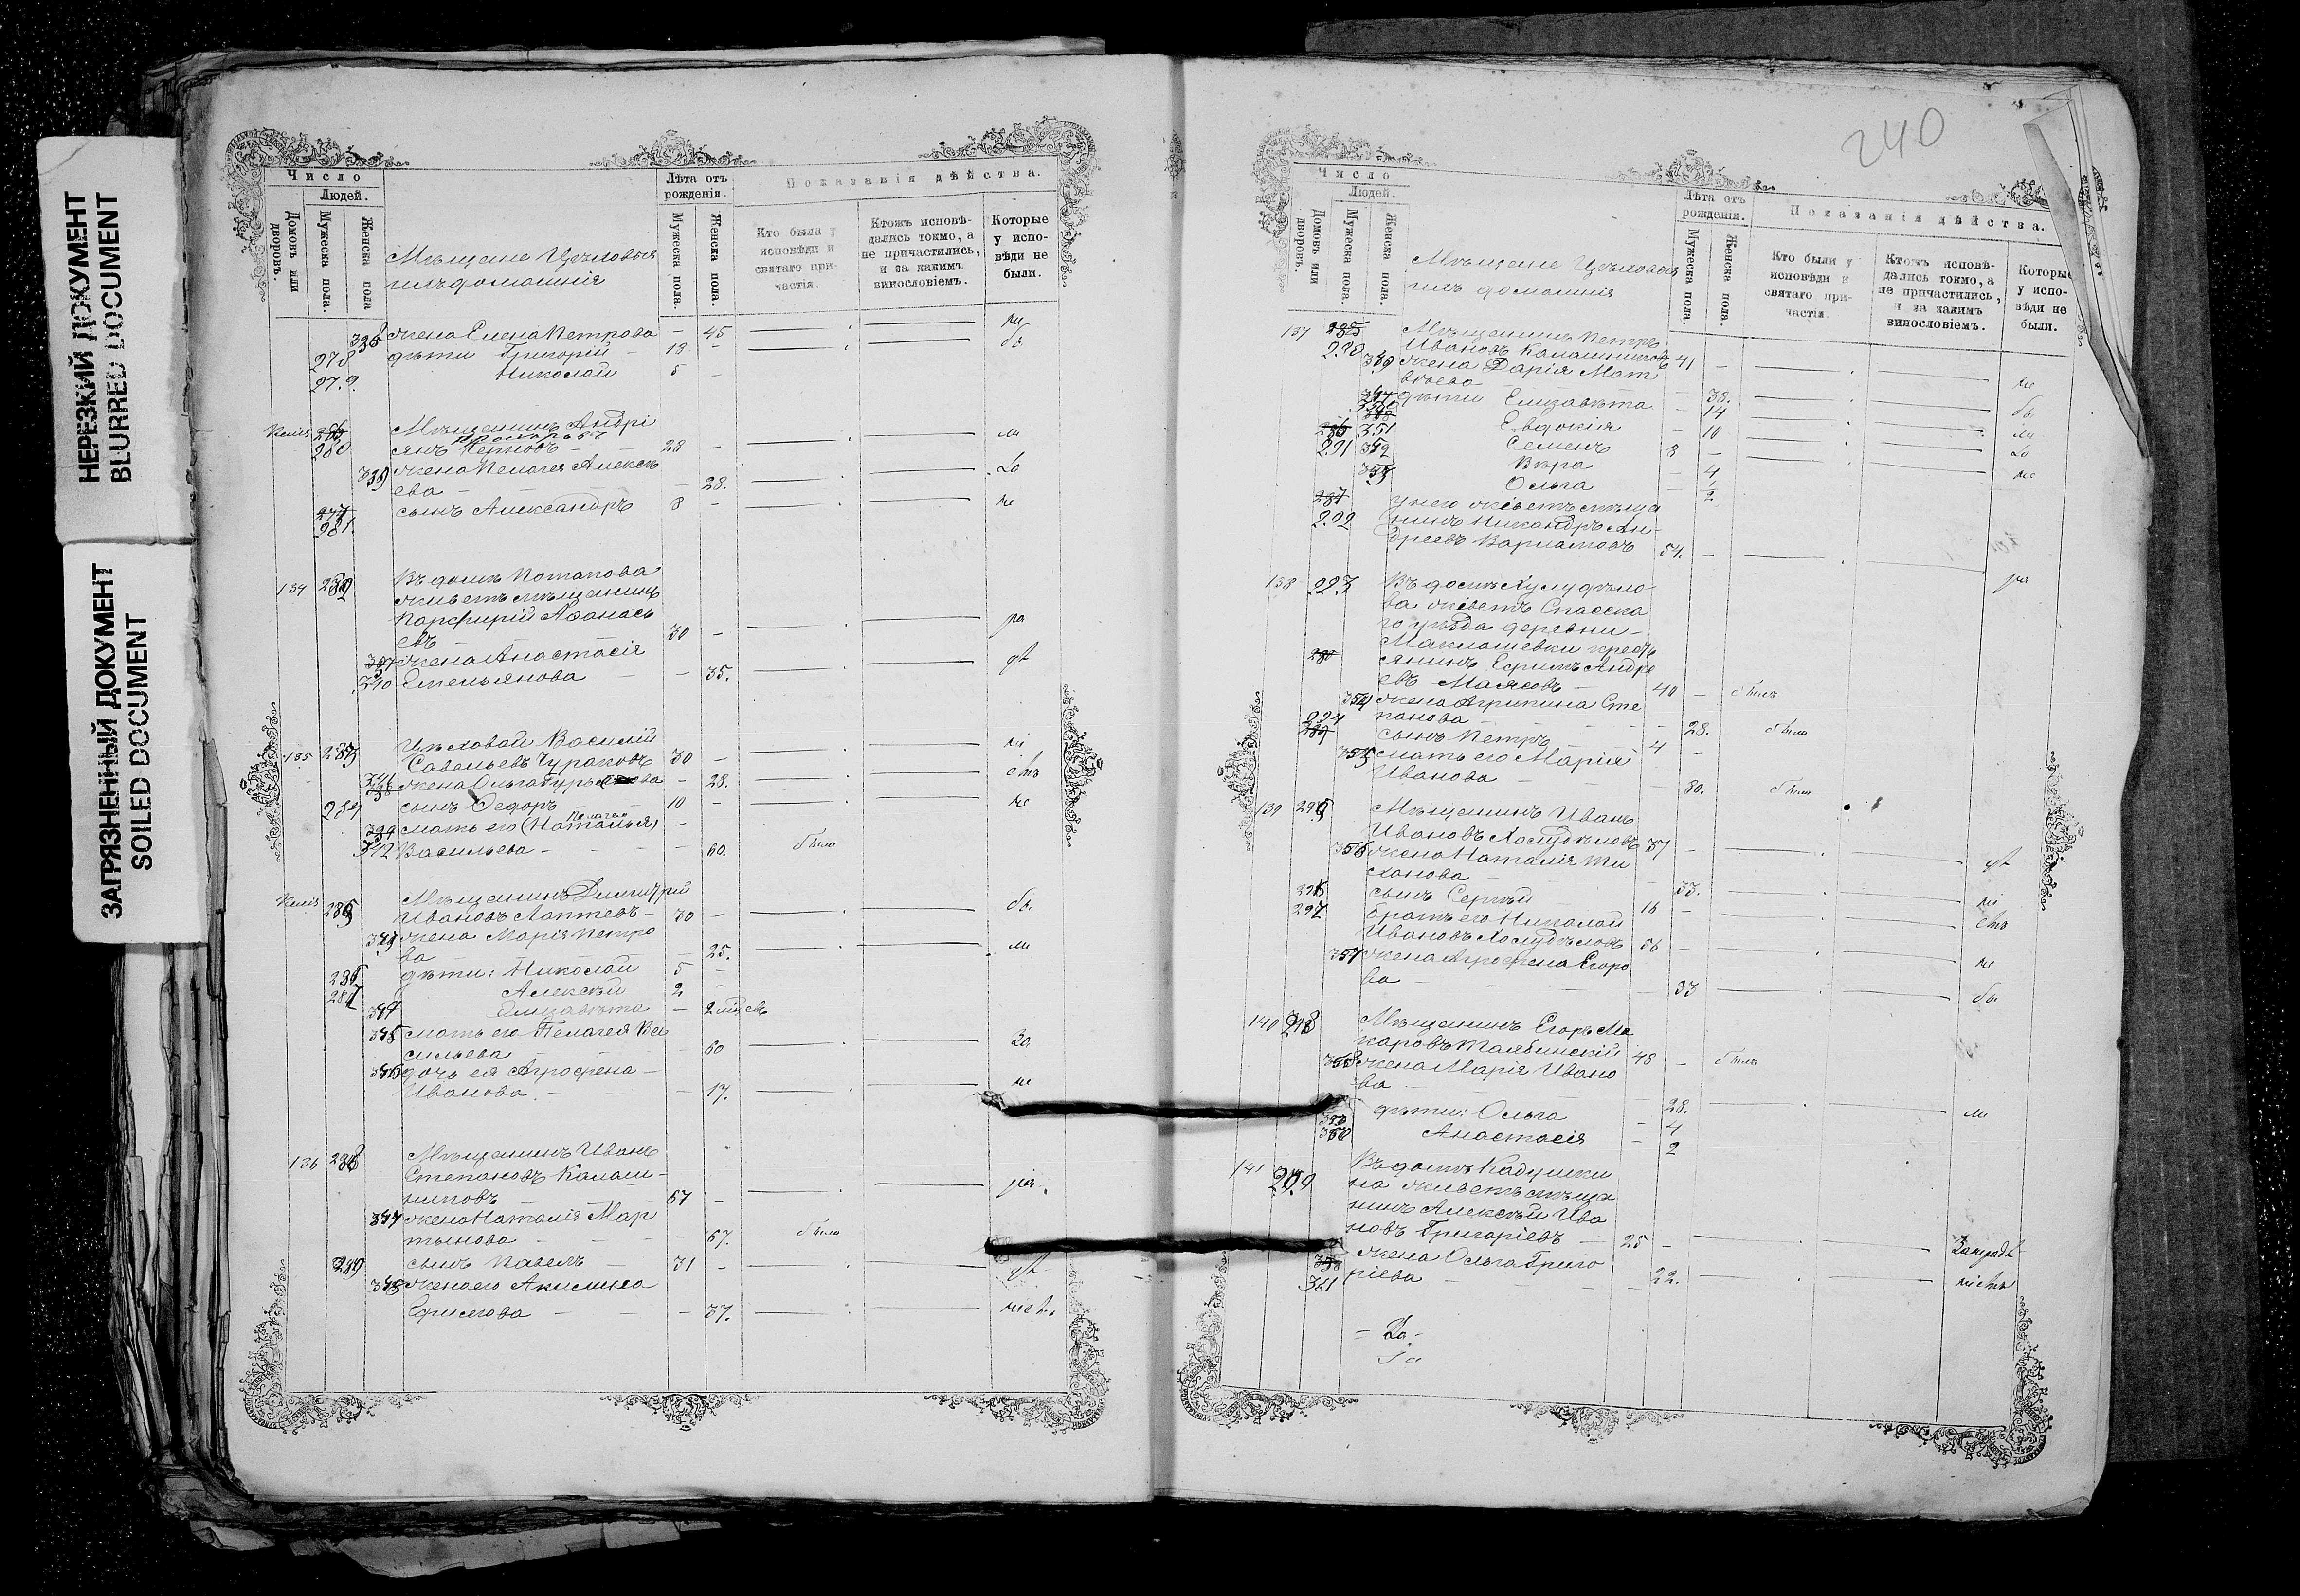 НЕРЕЗКИЙ ДОКУМЕНТ
BLURRED DOCUMENT
ЗАГРЯЗНЕННЫЙ ДОКУМЕНТ
SOILED DOCUMENT
Число
Людей.
Домовъ или дворовъ.
Мужеска пола.
Женска пола
Мѣщане Цеховые
и ихъ домашнія
Лѣта отъ рожденія.
Мужеска пола.
Женска пола.
Показанія дѣйства.
Кто были у исповѣди и святаго причастія.
Ктожъ исповѣдались токмо, а не причастились, и за какимъ винословіемъ.
Которые у исповѣди не были.
338 жена Елена Петрова - 45 не
278 дѣти Григорій - 18 - бы
279 Николай 5 -
280 Мѣщанинъ Андрі
янъ 28 - ли
339 жена Пелагея Алексѣ
ева - 28. За
281. сынъ Александръ 8 - не
134 282 Въ домѣ Потапова
живетъ мѣщанинъ
Парфирій Аѳанась
евъ 30 - ра
жена Анастасія
340 Емельянова - 35. дѣ
135 283 Цеховой Василій
Савельевъ Чураковъ 30 - ні
341 жена Ольга - 28. емъ
284 сынъ Ѳедоръ 10 - не
мать его (Наталья) Пелагея -
342 Васильева - 60. была
285 Мѣщанинъ Димитрій
Ивановъ Лаптевъ - 30 - бы
343 жена Марія Петро
ва - 25. ли
286 дѣти: Николай 5 -
287 Алексѣй 2 -
344 Елизавета - 2 мѣсев
345 мать его Пелагея Ва
сильева - 60 За
346 дочь ея Агрофена -
Иванова - 17. не
136 288 Мѣщанинъ Иванъ
Степановъ Калаш-
никовъ 67 - ра
347 жена Наталія Мар
тынова - 67. была
289 сынъ Павелъ 31 - дѣ
348 жена его Акилина
Ефимова - 37. ніемъ
240
Число
Людей.
Домовъ или дворовъ.
Мужеска пола.
Женска пола.
Мѣщане Цеховые
и ихъ домашнія
Лѣта отъ рожденія.
Мужеска пола.
Женска пола.
Показанія дѣйства.
Кто были у исповѣди и святаго причастія
Ктожъ исповѣдались токмо, а не причастились, и за какимъ винословіемъ.
Которые у исповѣди не были.
137 285 Мѣщанинъ Петръ
290 Ивановъ Калашниковъ 41 -
349 жена Дарія Мат
вѣева - 38. не
дѣти Елизавета - 14 бы
351 Евдокія - 10 ли
291 352 Семенъ 8 - За
Вѣра - 4 не
353 Ольга - ½
287 у него живетъ мѣща
292 нинъ Никандръ Ан-
дреевъ Варламовъ 54. - ра
138 293 Въ домѣ Холудѣло-
ва живетъ Спасска
го уѣзда деревни -
Маклашевки кресть
янинъ Ефимъ Андре
евъ Маясовъ - 40 - былъ
354 жена Агрипина Сте
панова - 28. была
294 сынъ Петръ 4 -
355 мать его Марія
Иванова - 80. была
139 295 Мѣщанинъ Иванъ
Ивановъ Холудѣловъ 37 - дѣ
356 жена Наталія Ти
ханова - 33. ні
296 сынъ Сергѣй 16 - емъ
297 братъ его Николай
Ивановъ Холудѣловъ 36 - не
357 жена Агрофена Егоро
ва - 33 бы
140 298 Мѣщанинъ Егоръ Ма
каровъ 48 - былъ
358 жена Марія Ивано
ва - 28. ли
359 дѣти: Ольга - 4
360 Анастасія - 2
141 299 Въ домѣ Кадушки
на живетъ мѣща
нинъ Алексѣй Ива
новъ Григоріевъ - 25 - За нерадѣ
жена Ольга Григо
361 ріева - 22. ніемъ